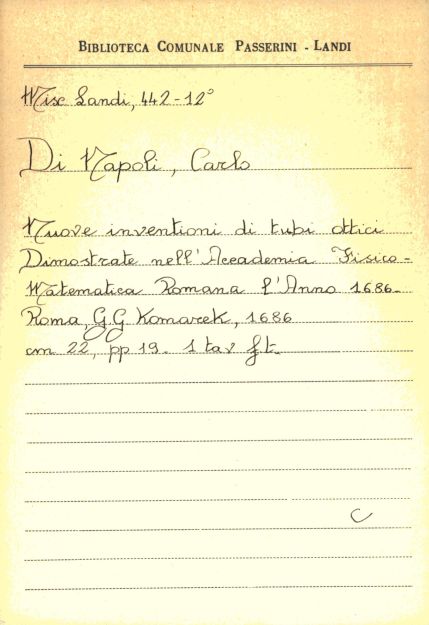 BIBLIOTECA COMUNALE PASSERINI - LANDI
Misc Landi, 442-12°
Di Napoli, Carlo
Nuove inventioni di tubi ottici
Dimostrate nell'Accademia Fisico-
Matematica Romana l'Anno 1686.
Roma, G.G Komarek, 1686
cm 22, pp 19. 1 tav f.t.
C